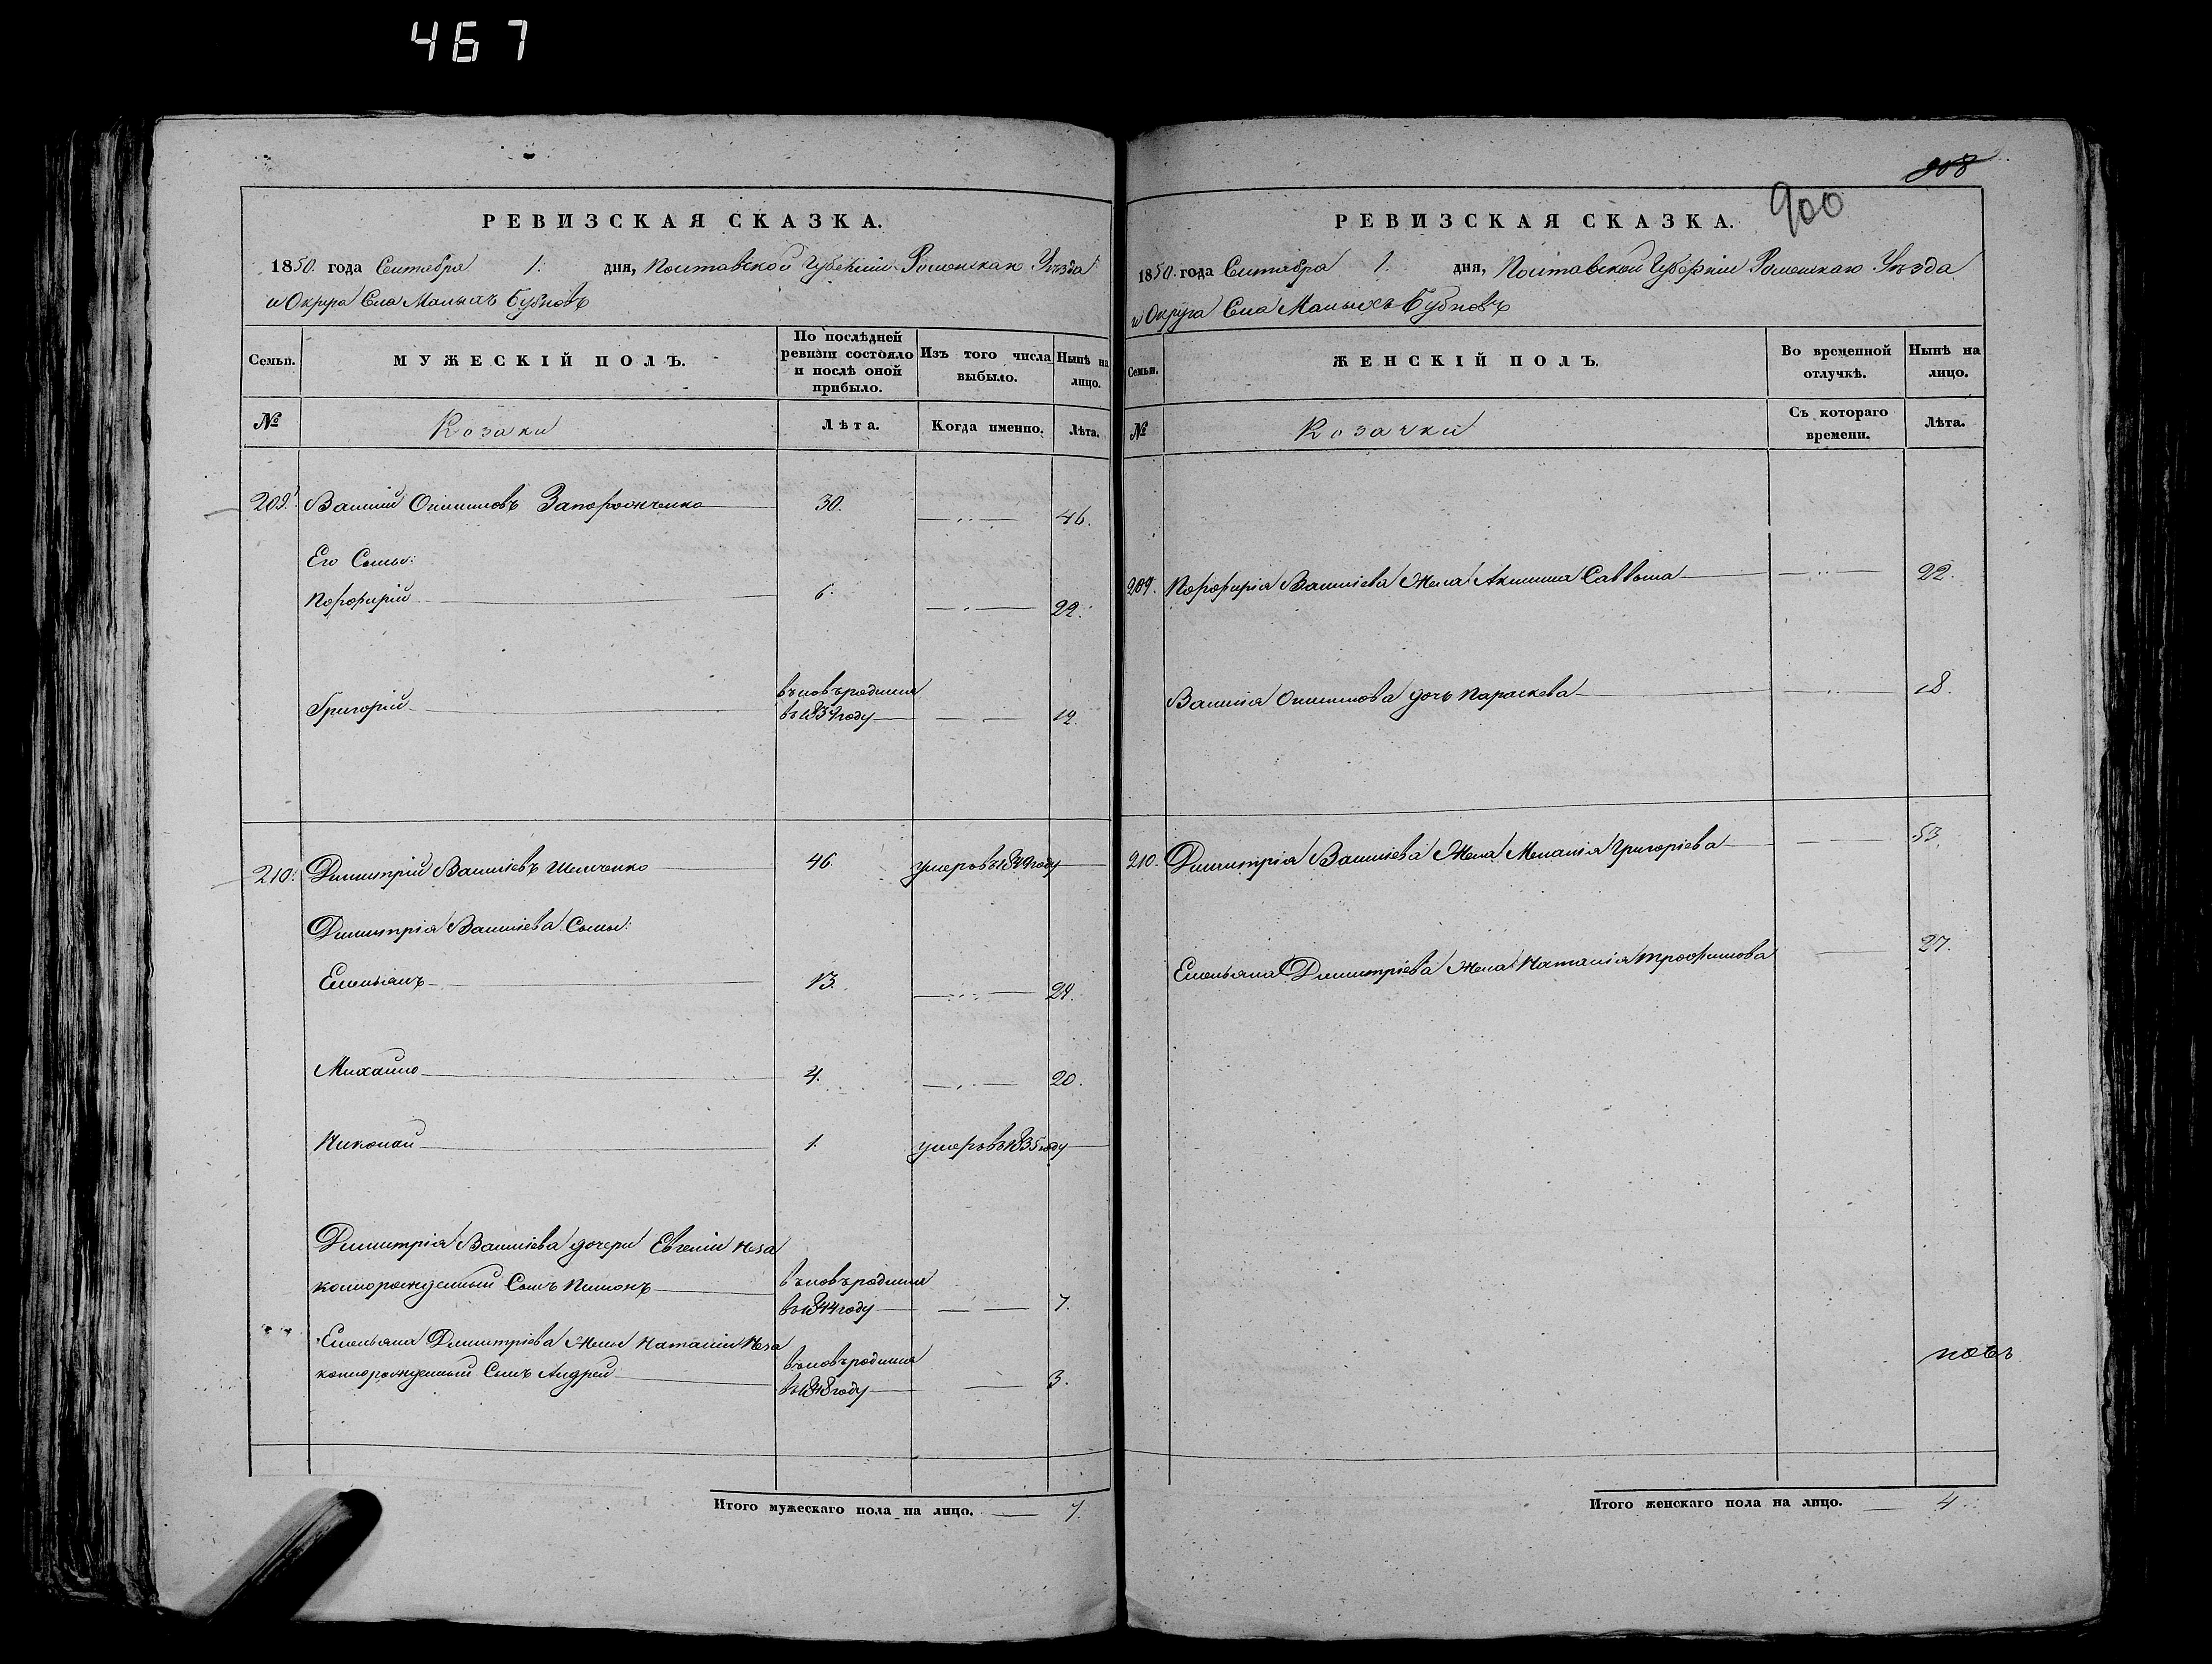 467
РЕВИЗСКАЯ СКАЗКА.
1850. года Сентября 1. дня, Полтавской Губерніи Роменскаго Уѣзда
и Округа Села Малыхъ Бубновъ
Семьи. МУЖЕСКІЙ ПОЛЪ. По послѣдней ревизіи состояло и послѣ оной прибыло. Изъ того числа выбыло. Нынѣ на лицо.
№ Козаки Лѣта. Когда именно. Лѣта.
209. Василій Запорожченко 30. 46.
Его Сыны:
Порфирій 6. 22.
Григорій вновь родился
въ году 12.
210. Димитрій Васильевъ Шевченко 46. умеръ въ 1849 году
Димитрія Васильева Сыны:
Емельянъ 13. 29.
Михайло 4. 20.
Николай 1. умеръ въ 1835 году
Димитрія Васильева дочери Евгеніи Неза
коннорожденный Сынъ вновь родился
въ 1844 году 7.
Емельяна Димитріева Жены Наталіи Неза
коннорожденный Сынъ Андрей вновь родился
въ 1848 году 3.
Итого мужескаго пола на лицо. 7.
908
900
РЕВИЗСКАЯ СКАЗКА.
1850. года Сентября 1. дня, Полтавской Губерніи Роменскаго Уѣзда
и Округа Села Малыхъ Бубновъ
Семьи. ЖЕНСКІЙ ПОЛЪ. Во временной отлучкѣ. Нынѣ на лицо.
№ Козачки Съ котораго времени. Лѣта.
209. Порфирія Васильева Жена Акилина Саввина 22.
Василія дочь Параскева 18.
210. Димитрія Васильева Жена Меланія Григорьева 53.
Емельяна Димитріева Жена Наталія Трофимова 27.
Итого женскаго пола на лицо. 4.